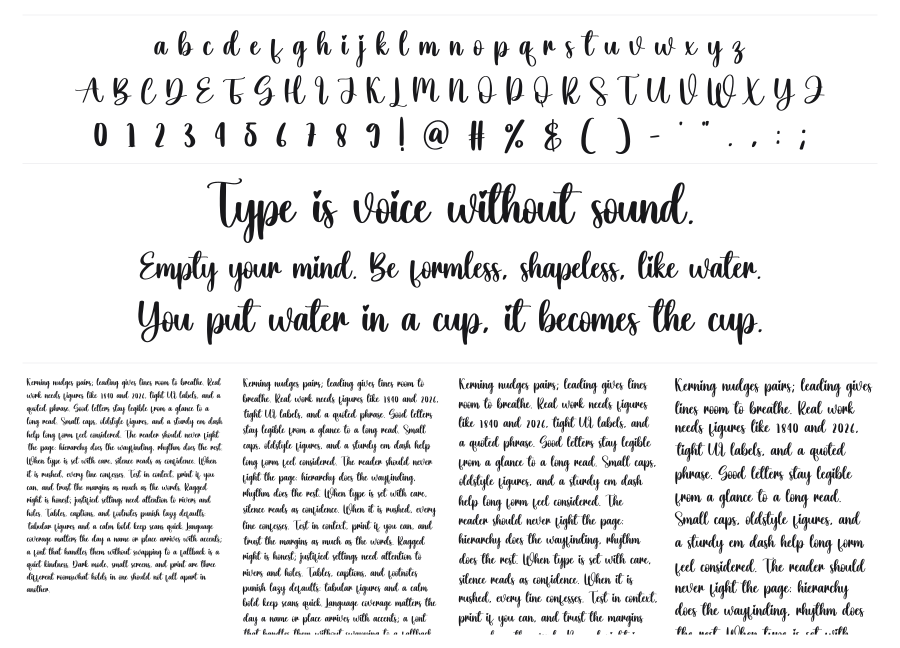 a b c d e f g h i j k l m n o p q r s t u v w x y z
A B C D E F G H I J K L M N O P Q R S T U V W X Y Z
0 1 2 3 4 5 6 7 8 9 ! @ # % & ( ) - ' " . , : ;
Type is voice without sound.
Empty your mind. Be formless, shapeless, like water.
You put water in a cup, it becomes the cup.
Kerning nudges pairs; leading gives lines room to breathe. Real
work needs figures like 1840 and 2026, tight UI labels, and a
quoted phrase. Good letters stay legible from a glance to a
long read. Small caps, oldstyle figures, and a sturdy em dash
help long form feel considered. The reader should never fight
the page: hierarchy does the wayfinding, rhythm does the rest.
When type is set with care, silence reads as confidence. When
it is rushed, every line confesses. Test in context, print if you
can, and trust the margins as much as the words. Ragged
right is honest; justified settings need attention to rivers and
holes. Tables, captions, and footnotes punish lazy defaults:
tabular figures and a calm bold keep scans quick. Language
coverage matters the day a name or place arrives with accents;
a font that handles them without swapping to a fallback is a
quiet kindness. Dark mode, small screens, and print are three
different rooms;what holds in one should not fall apart in
another.
Kerning nudges pairs; leading gives lines room to
breathe. Real work needs figures like 1840 and 2026,
tight UI labels, and a quoted phrase. Good letters
stay legible from a glance to a long read. Small
caps, oldstyle figures, and a sturdy em dash help
long form feel considered. The reader should never
fight the page: hierarchy does the wayfinding,
rhythm does the rest. When type is set with care,
silence reads as confidence. When it is rushed, every
line confesses. Test in context, print if you can, and
trust the margins as much as the words. Ragged
right is honest; justified settings need attention to
rivers and holes. Tables, captions, and footnotes
punish lazy defaults: tabular figures and a calm
bold keep scans quick. Language coverage matters the
day a name or place arrives with accents; a font
that handles them without swapping to a fallback
Kerning nudges pairs; leading gives lines
room to breathe. Real work needs figures
like 1840 and 2026, tight UI labels, and
a quoted phrase. Good letters stay legible
from a glance to a long read. Small caps,
oldstyle figures, and a sturdy em dash
help long form feel considered. The
reader should never fight the page:
hierarchy does the wayfinding, rhythm
does the rest. When type is set with care,
silence reads as confidence. When it is
rushed, every line confesses. Test in context,
print if you can, and trust the margins
Kerning nudges pairs; leading gives
lines room to breathe. Real work
needs figures like 1840 and 2026,
tight UI labels, and a quoted
phrase. Good letters stay legible
from a glance to a long read.
Small caps, oldstyle figures, and
a sturdy em dash help long form
feel considered. The reader should
never fight the page: hierarchy
does the wayfinding, rhythm does
the rest. When type is set with